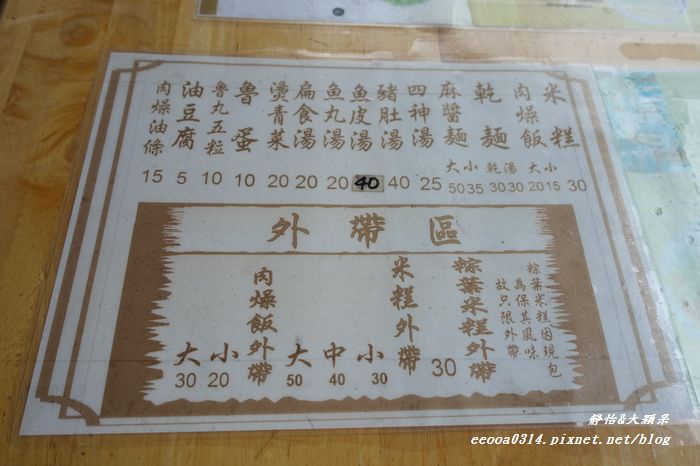 米糕 30
肉燥飯 大20 小15
乾麵 乾30 湯30
麻醬麵 大50 小35
四神湯 25
豬肚湯 40
魚皮湯 40
魚丸湯 20
扁食湯 20
燙青菜 20
魯蛋 10
魯丸五粒 10
油豆腐 5
肉燥油條 15
外帶區
粽葉米糕因現包
為保其風味
故只限外帶
粽葉米糕外帶 30
米糕外帶
小 30
中 40
大 50
肉燥飯外帶
小 20
大 30
靜怡&大顆呆
eeooa0314.pixnet.net/blog